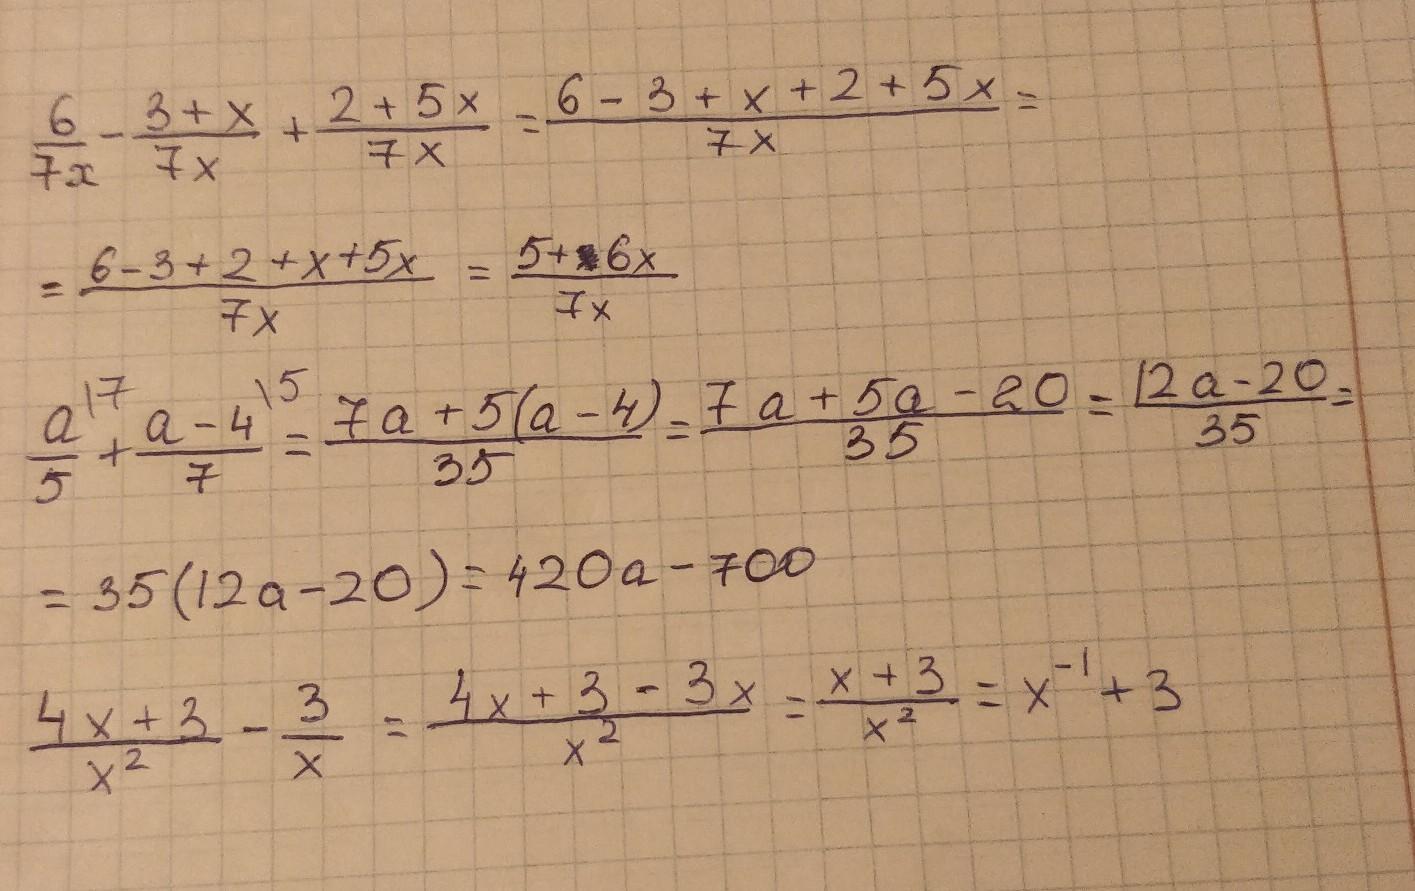 6/7x - 3+x/7x + 2+5x/7x = 6-3+x+2+5x/7x =
= 6-3+2+x+5x/7x = 5+6x/7x
a\7/5 + a-4\5/7 = 7a+5(a-4)/35 = 7a+5a-20/35 = 12a-20/35 =
= 35(12a-20) = 420a-700
4x+3/x² - 3/x = 4x+3-3x/x² = x+3/x² = x⁻¹+3